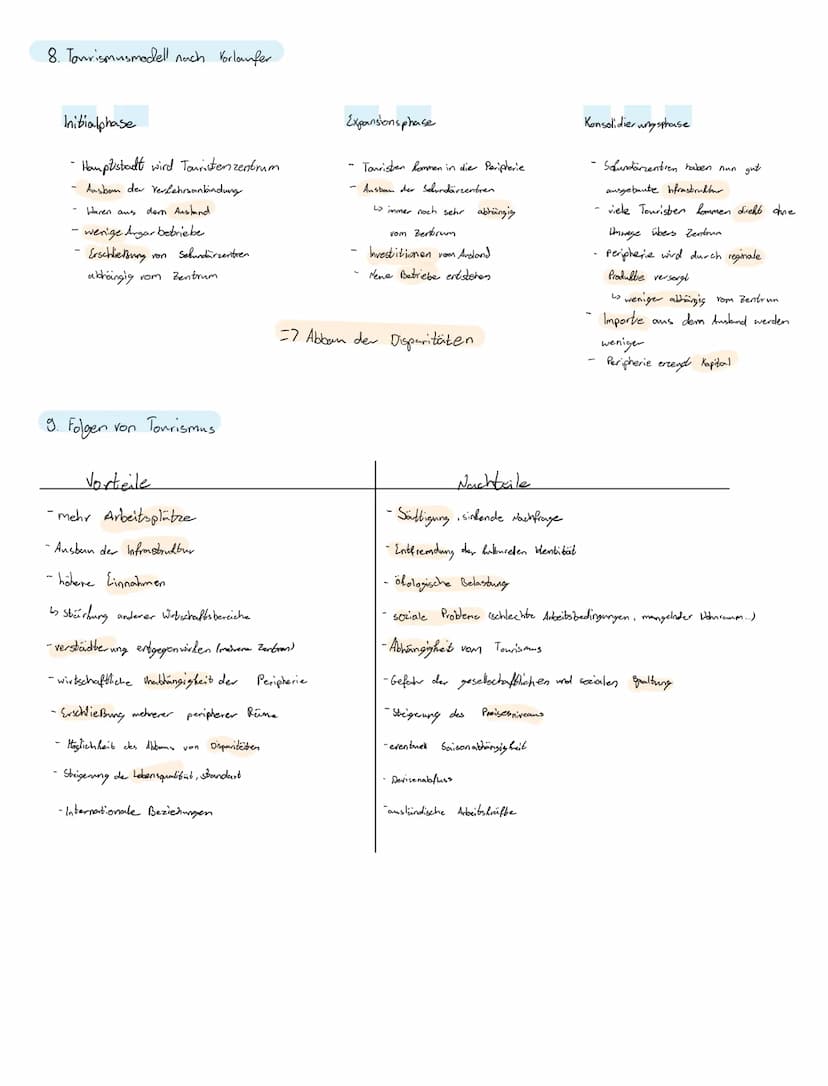 8. Tourismusmodell nach Vorlaufer
Initialphase
- Hauptstadt wird Touristenzentrum
- Ausbau der Verkehrsanbindung
- Waren aus dem Ausland
- wenige Agrarbetriebe
- Erschließung von Sekundärzentren
abhängig vom Zentrum
Expansionsphase
- Touristen kommen in die Peripherie
- Ausbau der Sekundärzentren
↳ immer noch sehr abhängig
vom Zentrum
- Investitionen vom Ausland
- Neue Betriebe entstehen
Konsolidierungsphase
- Sekundärzentren haben nun gut
ausgebaute Infrastruktur
- viele Touristen kommen direkt ohne
Umwege übers Zentrum
- Peripherie wird durch regionale
Produkte versorgt
↳ weniger abhängig vom Zentrum
- Importe aus dem Ausland werden
weniger
- Peripherie erzeugt Kapital
=> Abbau der Disparitäten
9. Folgen von Tourismus
Vorteile
- mehr Arbeitsplätze
- Ausbau der Infrastruktur
- höhere Einnahmen
↳ Stärkung anderer Wirtschaftsbereiche
- Verstädterung entgegenwirken (mehrere Zentren)
- wirtschaftliche Unabhängigkeit der Peripherie
- Erschließung mehrerer peripherer Räume
- Möglichkeit des Abbaus von Disparitäten
- Steigerung der Lebensqualität, standart
- Internationale Beziehungen
Nachteile
- Sättigung, sinkende Nachfrage
- Entfremdung der kulturellen Identität
- ökologische Belastung
- soziale Probleme (schlechte Arbeitsbedingungen, mangelnder Wohnraum..)
- Abhängigkeit vom Tourismus
- Gefahr der gesellschaftlichen und sozialen Spaltung
- Steigerung des Preisniveaus
- eventuell Saisonabhängigkeit
- Devisenabfluss
- ausländische Arbeitskräfte